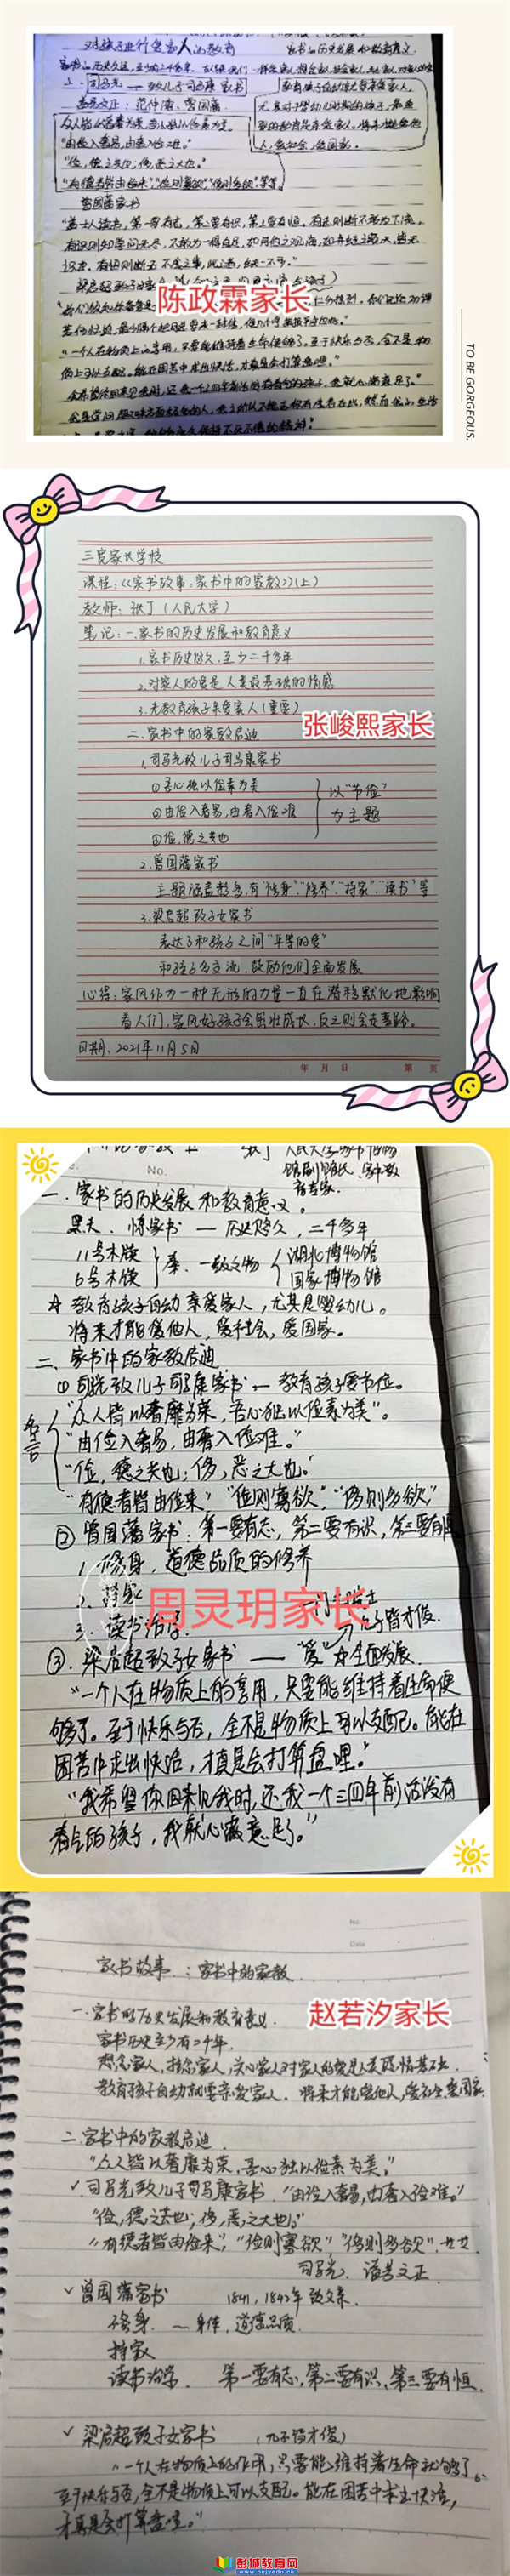 对孩子进行爱家人的教育
家书的历史发展和教育意义
司马光——致儿子司马康家书
"由俭入奢易,由奢入俭难。"
"俭,德之共也;侈,恶之大也。"
"有德者皆由俭来""俭则寡欲""侈则多欲"等等。
曾国藩家书
"盖士人读书,第一要有志,第二要有识,第三要有恒。有志则断不敢为下流,
有识则知学问无尽,不敢以一得自足,如河伯之观海,如井蛙之窥天,皆无
识者。有恒则断无不成之事,此三者,缺一不可。"
陈政霖家长
"一个人在物质上的享用,只要能维持着生命便够了。至于快乐与否,全不是物
质上可以支配。能在困苦中求出快活,才真是会打算盘哩。"
TO BE GORGEOUS.
三宽家长学校
课程:《家书故事:家书中的家教》(上)
教师:张丁(人民大学)
笔记:一.家书的历史发展和教育意义
1.家书历史悠久,至少二千多年
2.对家人的爱是人类最基础的情感
3.先教育孩子亲爱家人(重要)
张峻熙家长
二.家书中的家教启迪
1.司马光致儿子司马康家书
①吾心独以俭素为美
②由俭入奢易,由奢入俭难
③俭,德之共也
以"节俭"
为主题
2.曾国藩家书
主题涵盖整多,有"修身"、"修养"、"持家"、"读书"等
3.梁启超致子女家书
表达了和孩子之间"平等的爱"
和孩子多交流,鼓励他们全面发展
心得:家风作为一种无形的力量一直在潜移默化地影响
着人们,家风好孩子会茁壮成长,反之则会走弯路。
日期:2021年11月5日
年 月 日 第 页
No.
张丁 人民大学家书博物
馆副馆长、家书教
育专家.
一.家书的历史发展和教育意义。
黑夫、惊家书 — 历史悠久,二千多年
11号木牍
6号木牍
秦.一级文物
湖北博物馆
国家博物馆
☆ 教育孩子自幼亲爱家人,尤其是婴幼儿。
将来才能爱他人,爱社会,爱国家.
二、家书中的家教启迪
①司马光致儿子司马康家书 — 教育孩子要节俭。
名言
"众人皆以奢靡为荣,吾心独以俭素为美"。
"由俭入奢易,由奢入俭难。"
"俭,德之共也;侈,恶之大也."
"有德者皆由俭来""俭则寡欲""侈则多欲"
②曾国藩家书:第一要有志,第二要有识,第三要有恒
1.修身,道德品质的修养
2.持家
周灵玥家长
3.读书治学.
九子皆才俊.
③.梁启超致子女家书 —— "爱"☆全面发展.
"一个人在物质上的享用,只要能维持着生命便
够了。至于快乐与否,全不是物质上可以支配。能在
困苦中求出快活,才真是会打算盘哩。"
"我希望你回来见我时,还我一个三四年前活泼有
春气的孩子,我就心满意足了。"
No.
Date
家书故事:家书中的家教
一.家书的历史发展和教育意义.
赵若汐家长
家书历史至少有二千年.
教育孩子自幼就要亲爱家人.将来才能爱他人,爱社会,爱国家.
二.家书中的家教启迪.
"众人皆以奢靡为荣,吾心独以俭素为美,"
✓司马光致儿子司马康家书."由俭入奢易,由奢入俭难。"
"俭,德之共也;侈,恶之大也。"
"有德者皆由俭来","俭则寡欲""侈则多欲".
司马光.谥号文正.
✓曾国藩家书 1841,1842年 致父亲.
修身. — 身体,道德品质.
持家
读书治学. 第一要有志,第二要有识,第三要有恒.
✓梁启超致子女家书 (九子皆才俊)
"一个人在物质上的作用,只要能维持着生命就够了。
至于快乐与否,全不是物质上可以支配。能在困苦中求出快活,
才真是会打算盘哩。"
彭城教育网
www.pcjyedu.cn